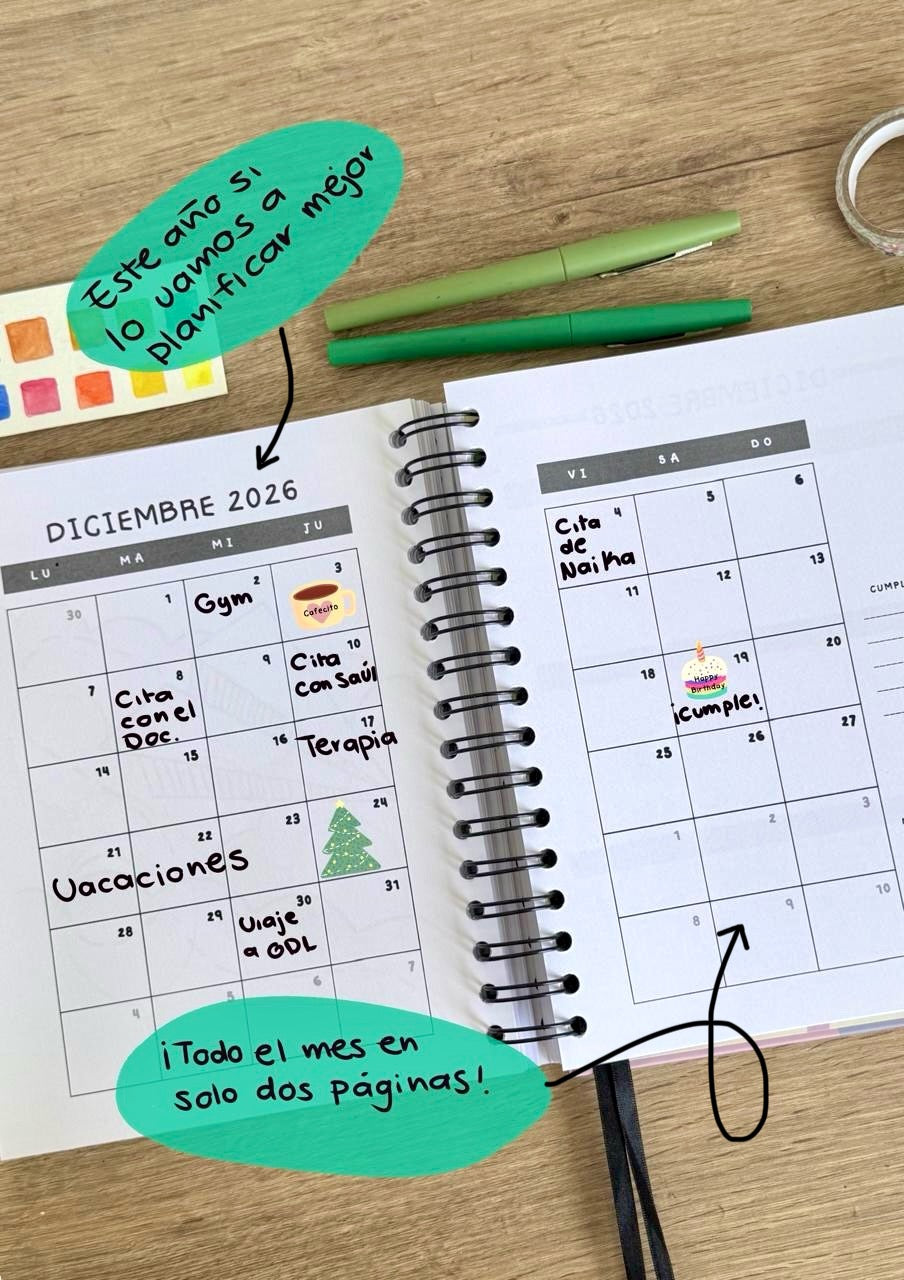 Este año si
lo vamos a
planificar mejor
DICIEMBRE 2026
LU MA MI JU
30 1 2 3
Gym
Cafecito
7 8 9 10
Cita
con el
Doc.
Cita
con Saúl
14 15 16 17
Terapia
21 22 23 24
Vacaciones
28 29 30 31
Viaje
a GDL
4 5 6 7
¡Todo el mes en
solo dos páginas!
DICIEMBRE 2026
VI SA DO
4 5 6
Cita
de
Naika
11 12 13
18 19 20
Happy
Birthday
¡Cumple!
25 26 27
1 2 3
8 9 10